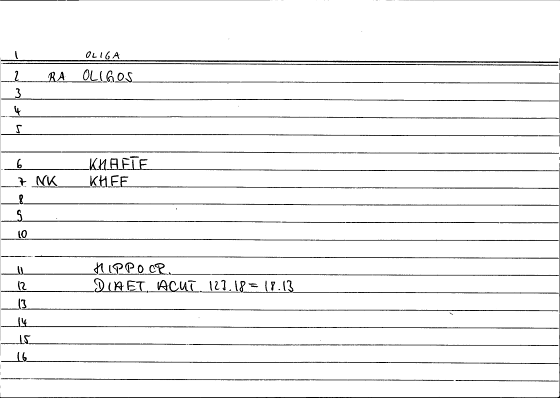 1 OLIGA
2 RA OLIGOS
3
4
5
6 KHAFIF
7 NK KHFF
8
9
10
11 HIPPOCR.
12 DIAET. ACUT. 123.18 = 18.13
13
14
15
16